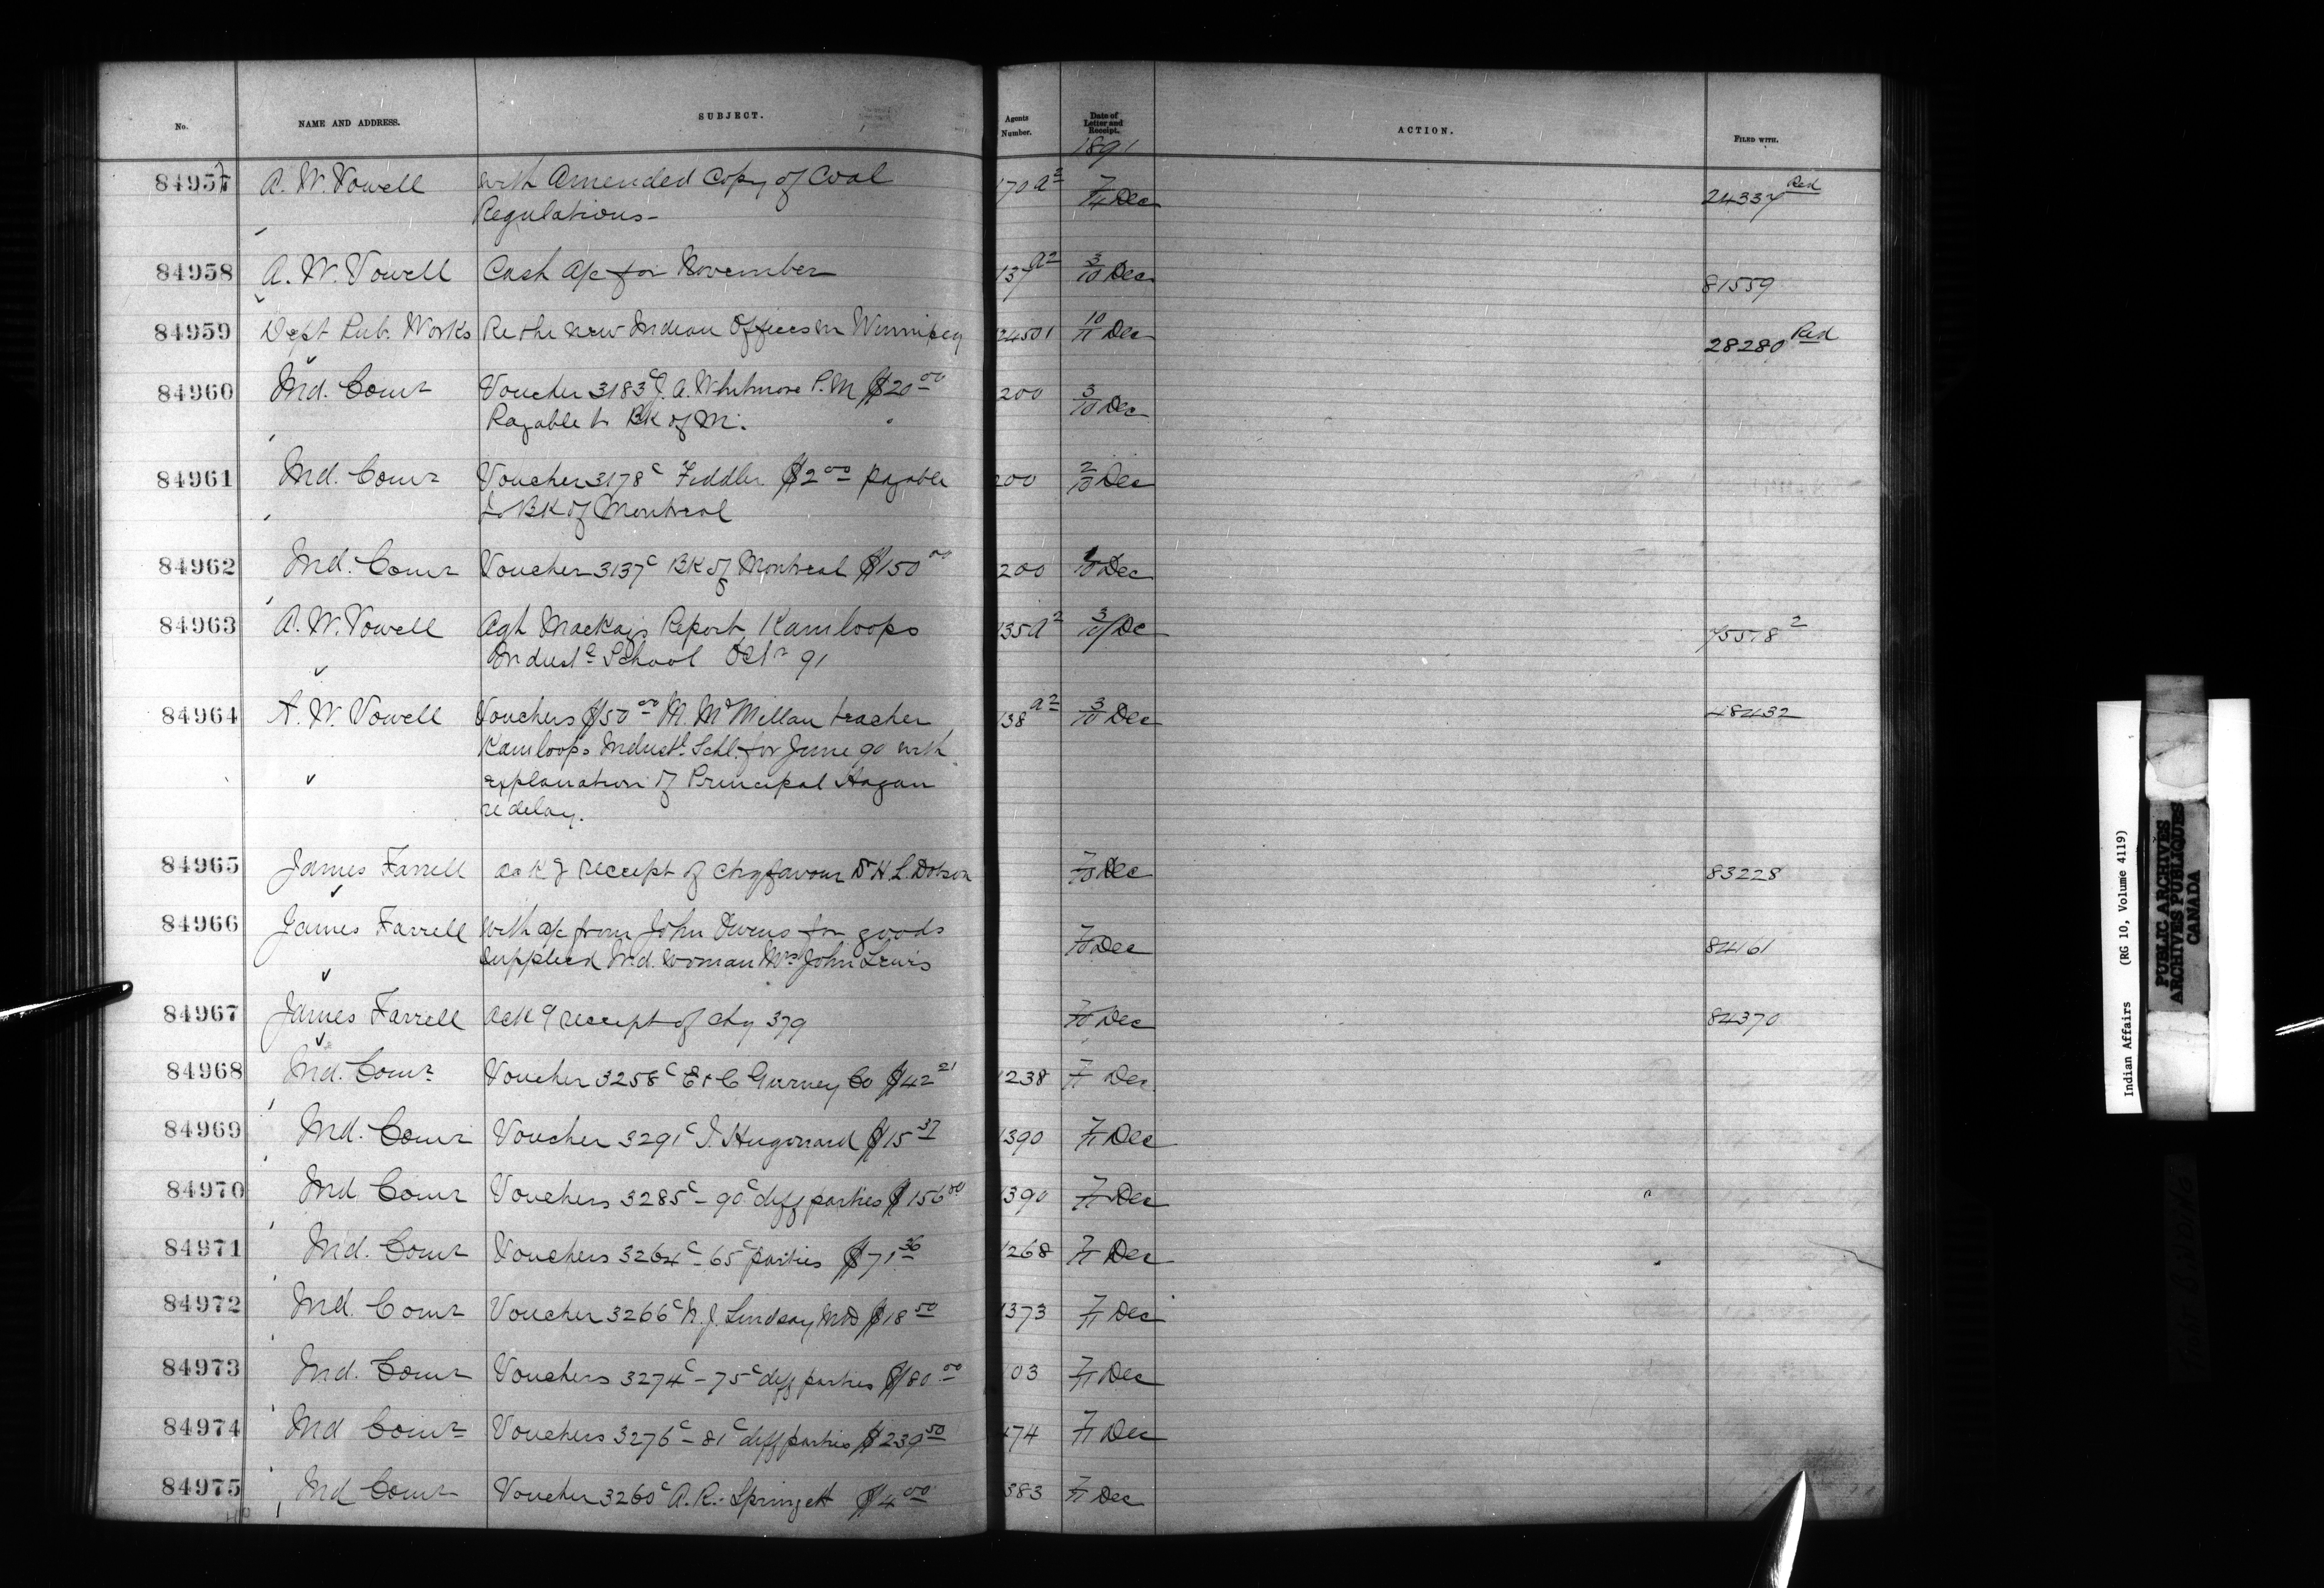 No. NAME AND ADDRESS. SUBJECT. Agents Number. Date of Letter and Receipt. ACTION. FILED WITH.
1891
84957 A. W. Vowell with Amended Copy of Coal 170 a2 7/4 Dec 24337 Red
Regulations -
84958 A. W. Vowell Cash a/c for November 137 a2 3/10 Dec 81559
84959 Dept Pub. Works Re the new Indian Offices in Winnipeg 24501 10/11 Dec 28280 Red
84960 Ind. Comr Voucher 3183c J. A. Whitmore P. M $20.00 200 3/10 Dec
Payable to BK of M.
84961 Ind. Comr Voucher 3178c Fiddler $2.00 payable 200 2/10 Dec
to BK of Montreal
84962 Ind. Comr Voucher 3137c BK of Montreal $150.00 200 /10 Dec
84963 A. W. Vowell Agt Mackay's Report, Kamloops 135 a2 3/10 Dec 75518 2
Indust. School Octr 91
84964 A. W. Vowell Vouchers $50.00 M. McMillan teacher 138 a2 3/10 Dec 48432
Kamloops Industl. Schl. for June 90 with
explanation of Principal Hagan
re delay.
84965 James Farrell ack g receipt of chq favour Dr H. L. Dobson 7/10 Dec 83228
84966 James Farrell with a/c from John Owens for goods
supplied Ind. woman Mrs John Lewis 7/10 Dec 84161
84967 James Farrell ack g receipt of chq 379 7/10 Dec 84370
84968 Ind. Comr Voucher 3258c E & C Gurney Co $42.21 1238 7/11 Dec.
84969 Ind. Comr Voucher 3291c J. Hugonard $15.37 1390 7/11 Dec
84970 Ind Comr Vouchers 3285c - 90c diff parties $156.00 1390 7/11 Dec
84971 Ind. Comr Vouchers 3264c - 65c parties $71.36 1268 7/11 Dec
84972 Ind. Comr Voucher 3266c N. J. Lindsay MD $18.50 1373 7/11 Dec
84973 Ind. Comr Vouchers 3274c - 75c diff parties $80.00 103 7/11 Dec
84974 Ind Comr Vouchers 3276c - 81c diff parties $239.50 174 7/11 Dec
84975 Ind Comr Voucher 3260c A. R. Springett $4.00 383 7/11 Dec
Indian Affairs (RG 10, Volume 4119)
PUBLIC ARCHIVES
ARCHIVES PUBLIQUES
CANADA